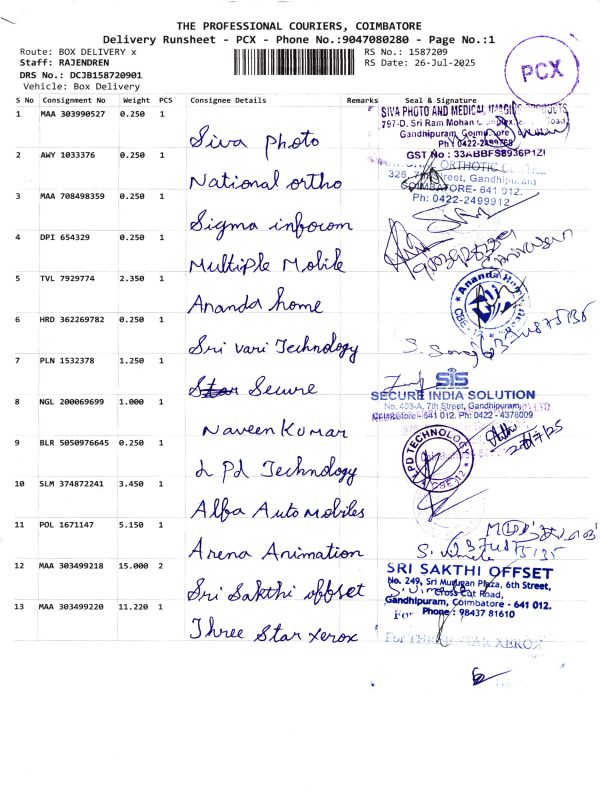 THE PROFESSIONAL COURIERS, COIMBATORE
Delivery Runsheet - PCX - Phone No.:9047080280 - Page No.:1
Route: BOX DELIVERY x
RS No.: 1587209
Staff: RAJENDREN
RS Date: 26-Jul-2025
DRS No.: DCJB158720901
Vehicle: Box Delivery
PCX
S No Consignment No Weight PCS Consignee Details Remarks Seal & Signature
1 MAA 303990527 0.250 1 Siva Photo
SIVA PHOTO AND MEDICAL IMAGING PRODUCTS
797-D, Sri Ram Mohan Complex, Road,
Gandhipuram, Coimbatore
Ph: 0422-2499768
GST No : 33ABBFS8936P1ZI
2 AWY 1033376 0.250 1 National ortho
ORTHOTIC
326, 7th Street, Gandhipuram
COIMBATORE- 641 012.
Ph: 0422-2499912
3 MAA 708498359 0.250 1 Sigma infocom
4 DPI 654329 0.250 1 Multiple Mobile
5 TVL 7929774 2.350 1 Ananda home
Ananda Home
CBE-12
6 HRD 362269782 0.250 1 Sri vari Technology
7 PLN 1532378 1.250 1 Star Secure
SIS
SECURE INDIA SOLUTION
No. 403-A, 7th Street, Gandhipuram,
Coimbatore- 641 012. Ph: 0422 - 4378009
8 NGL 200069699 1.000 1 Naveen Kumar
9 BLR 5050976645 0.250 1 L Pd Technology
LPD TECHNOLOGY
CBE-12
10 SLM 374872241 3.450 1 Alfa Auto Mobiles
11 POL 1671147 5.150 1 Arena Animation
12 MAA 303499218 15.000 2 Sri Sakthi offset
SRI SAKTHI OFFSET
No. 249, Sri Murugan Plaza, 6th Street,
Cross Cut Road,
Gandhipuram, Coimbatore - 641 012.
Phone : 98437 81610
13 MAA 303499220 11.220 1 Three Star xerox
For THREE STAR XEROX